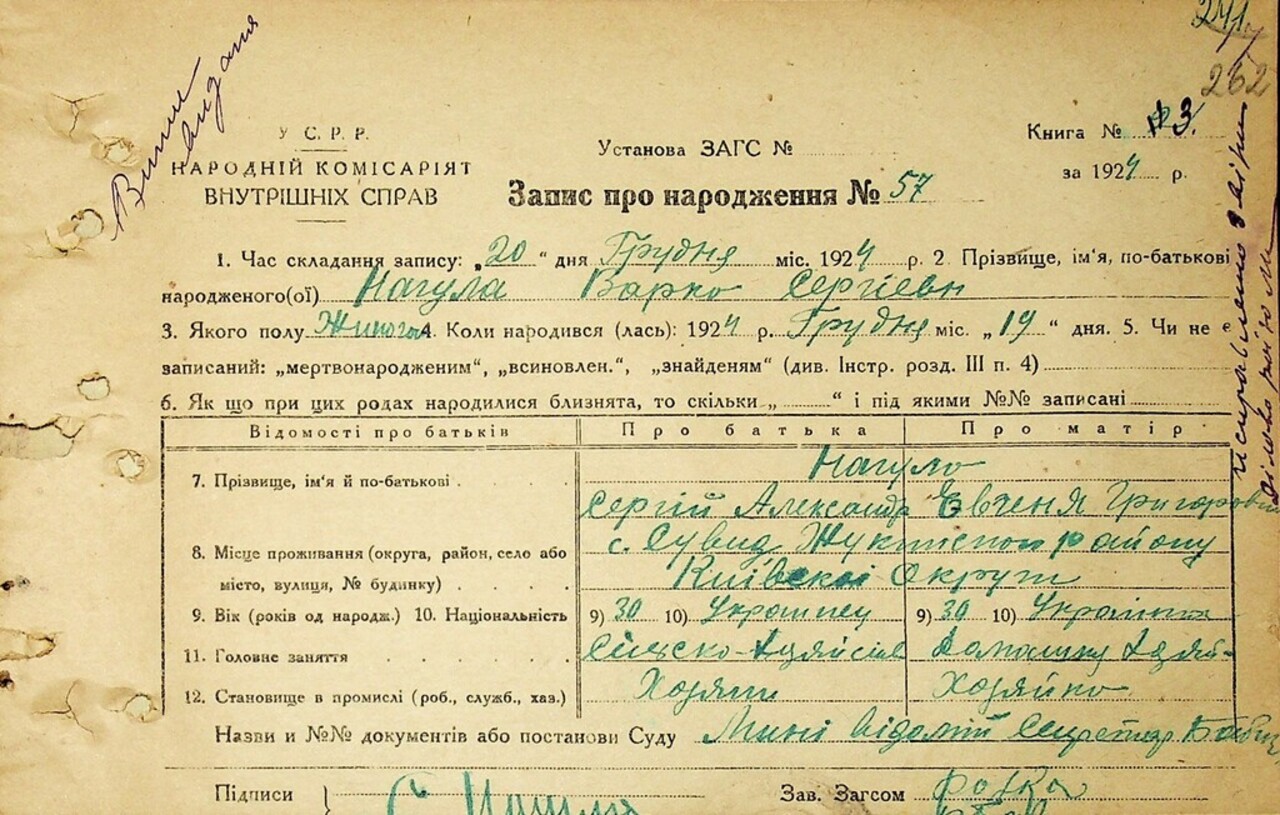 241
262
У С. Р. Р.
НАРОДНІЙ КОМІСАРІЯТ
ВНУТРІШНІХ СПРАВ
Установа ЗАГС №
Книга № 3.
за 1924 р.
Запис про народження № 57
1. Час складання запису: „20“ дня Грудня міс. 1924 р. 2. Прізвище, ім'я, по-батькові
народженого(ої) Нагула Варко Сергіевн
3. Якого полу 4. Коли народився (лась): 1924 р. Грудня міс. „19“ дня. 5. Чи не є
записаний: „мертвонародженим“, „всиновлен.“, „знайденям“ (див. Інстр. розд. III п. 4)
6. Як що при цих родах народилися близнята, то скільки „ “ і під якими №№ записані
Відомості про батьків Про батька Про матір
7. Прізвище, ім'я й по-батькові Нагуло
Сергій Александр Євгеня Григоровн
8. Місце проживання (округа, район, село або с. Сувид Жукинского району
місто, вулиця, № будинку) Київскоі Округи
9. Вік (років од народж.) 10. Національність 9) 30 10) Украинец 9) 30 10) Украінка
11. Головне заняття
12. Становище в промислі (роб., служб., хаз.) Хозяин Хозяйко
Назви и №№ документів або постанови Суду Мині відомій Секретар
Підписи Зав. Загсом